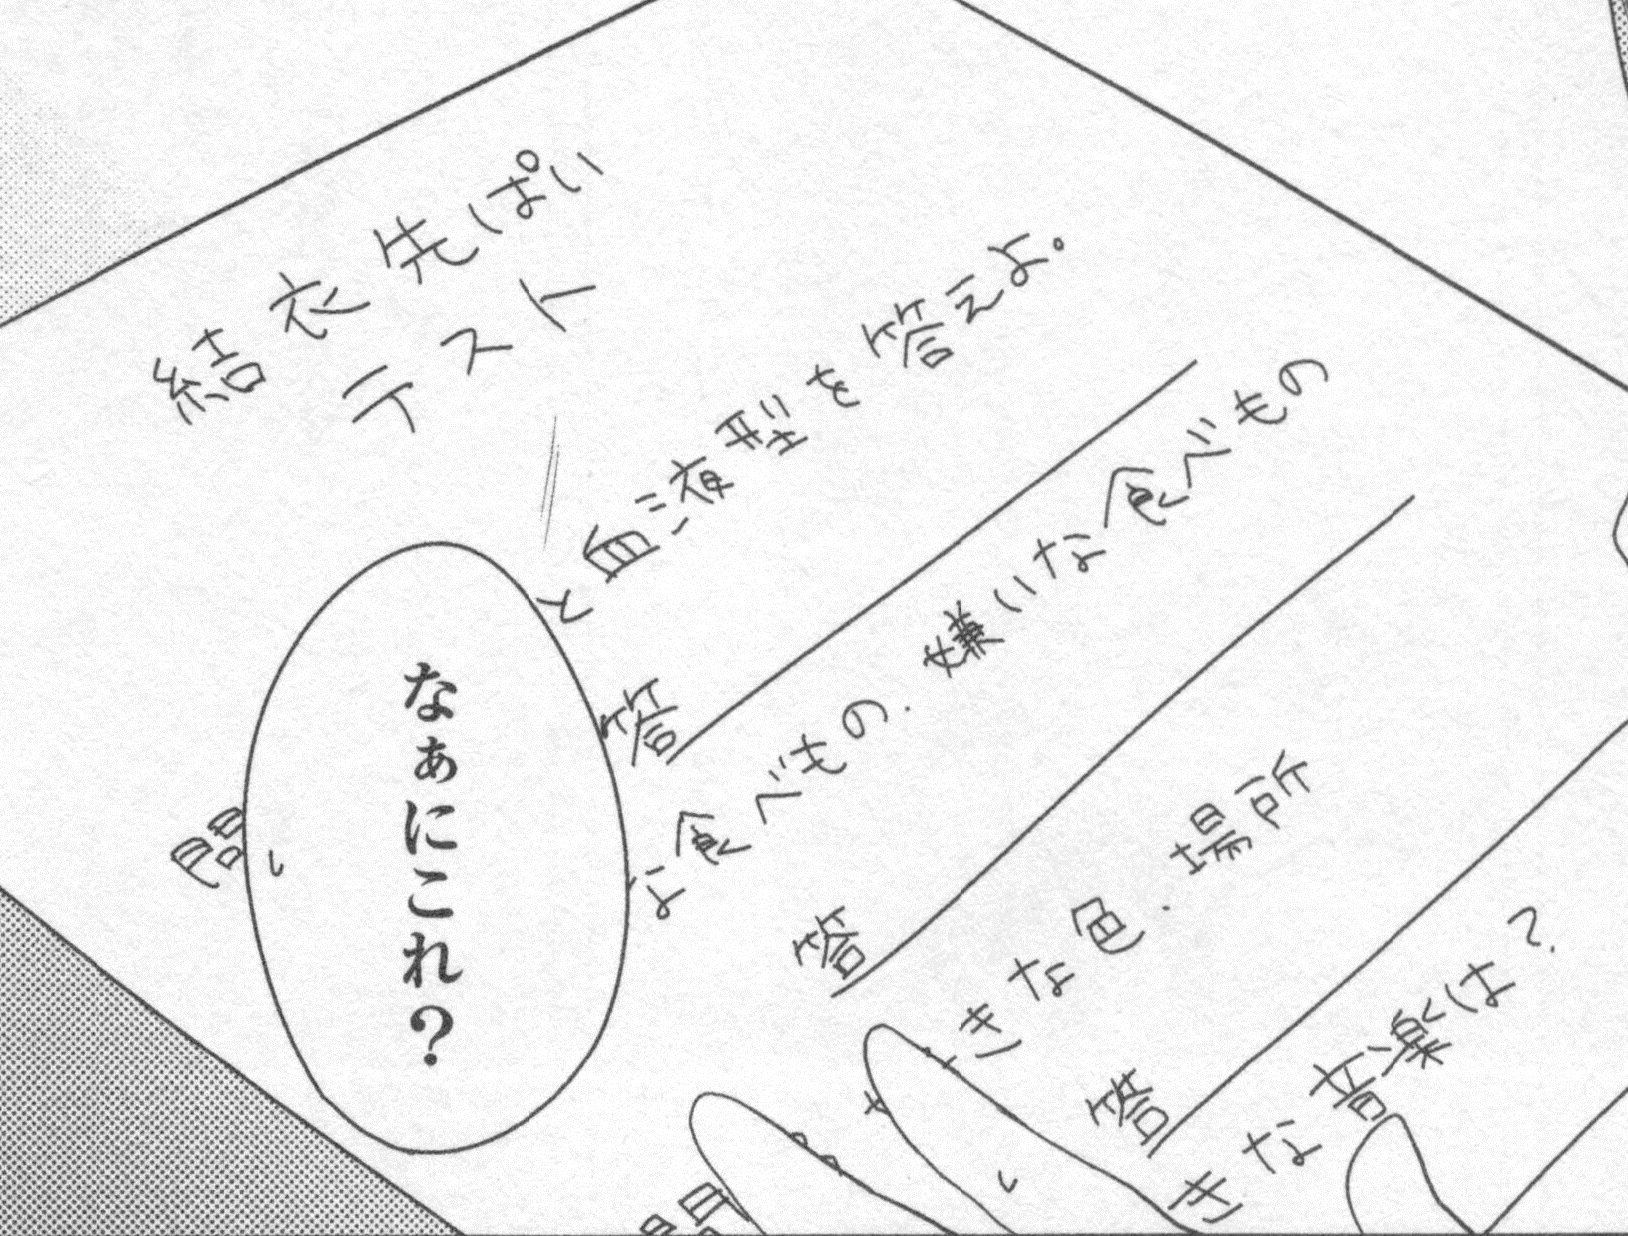 結衣先ぱい
テスト
と血液型を答えよ。
答
な食べもの.嫌いな食べもの
答
きな色.場所
答
きな音楽は?
なぁにこれ?
問
問